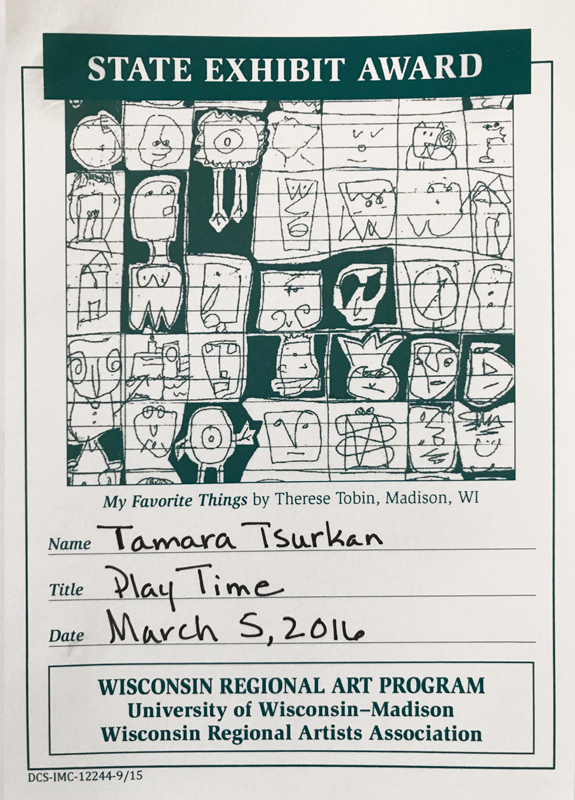 STATE EXHIBIT AWARD
My Favorite Things by Therese Tobin, Madison, WI
Name Tamara Tsurkan
Title Play Time
Date March 5, 2016
WISCONSIN REGIONAL ART PROGRAM
University of Wisconsin–Madison
Wisconsin Regional Artists Association
DCS-IMC-12244-9/15